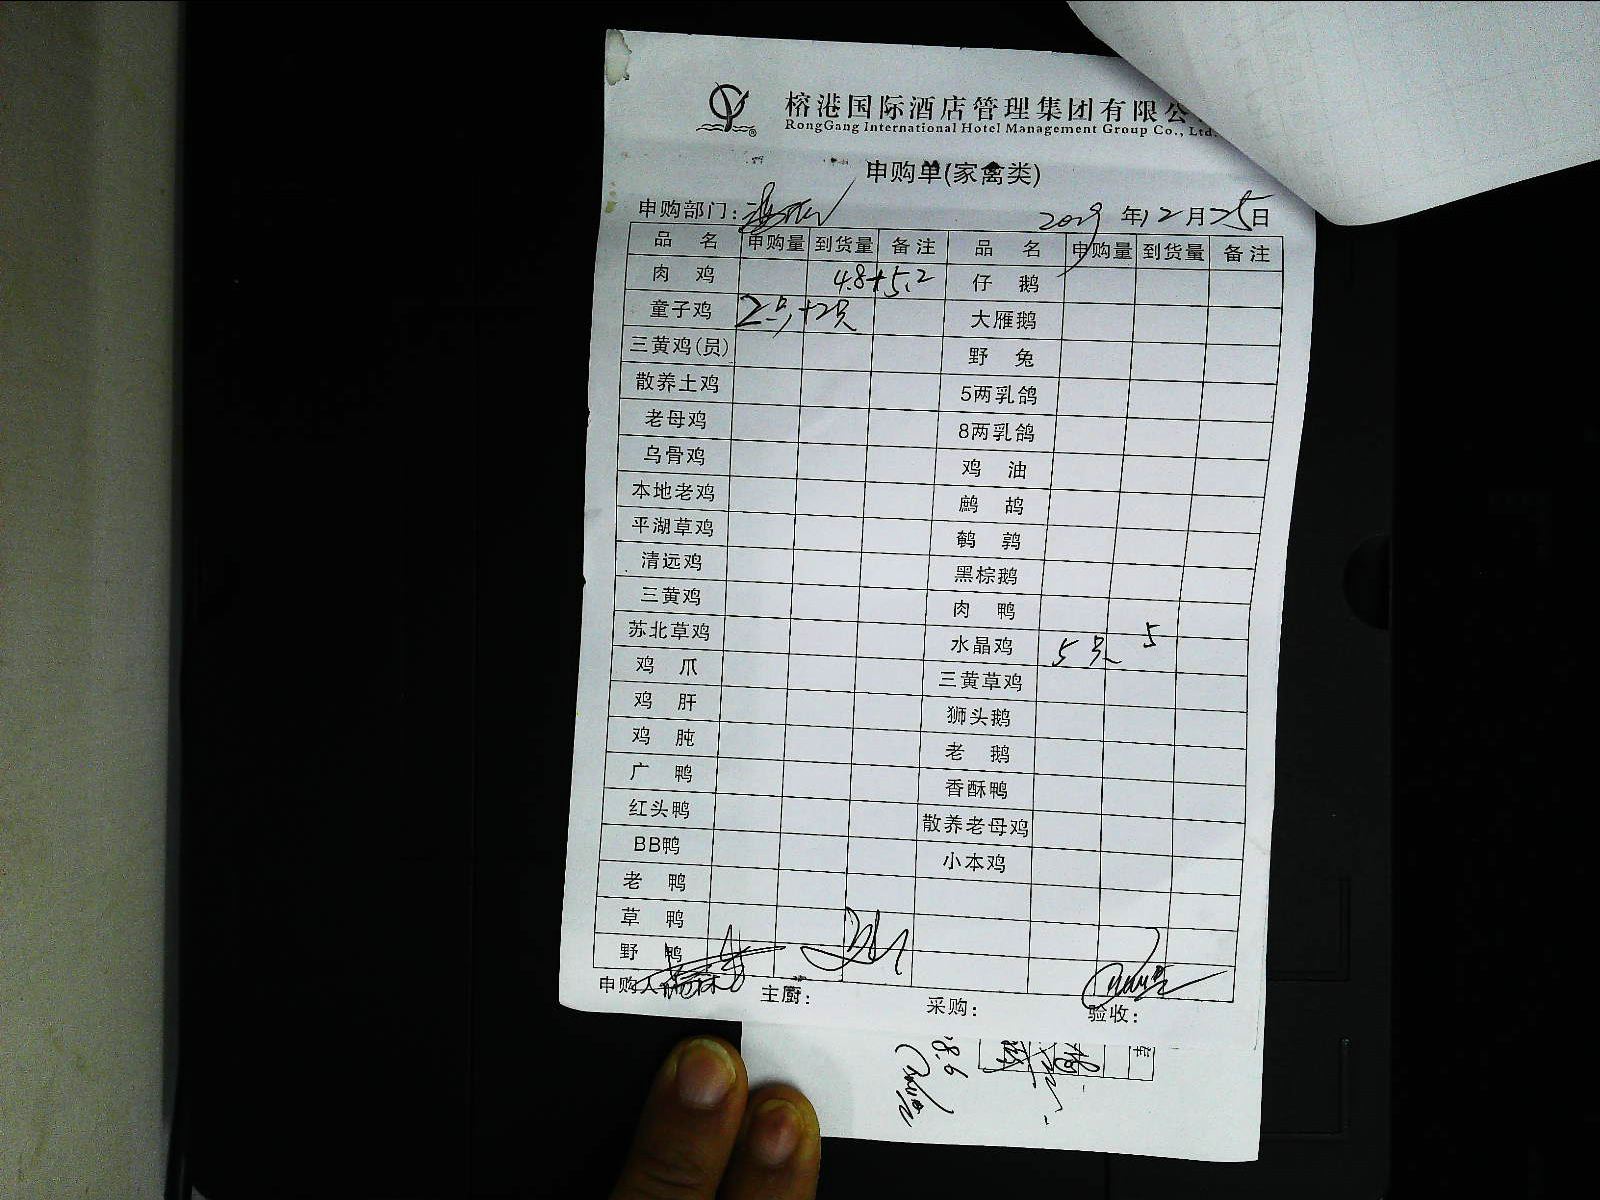 榕港国际酒店管理集团有限公
RongGang International Hotel Management Group Co., Ltd.
申购单(家禽类)
申购部门:
2019 年12月25日
品 名 申购量 到货量 备注 品 名 申购量 到货量 备注
肉 鸡 4.8+5.2 仔 鹅
童子鸡 2只+2只 大雁鹅
三黄鸡(员) 野 兔
散养土鸡 5两乳鸽
老母鸡 8两乳鸽
乌骨鸡 鸡 油
本地老鸡 鹧 鸪
平湖草鸡 鹌 鹑
清远鸡 黑棕鹅
三黄鸡 肉 鸭
苏北草鸡 水晶鸡 5只 5
鸡 爪 三黄草鸡
鸡 肝 狮头鹅
鸡 肫 老 鹅
广 鸭 香酥鸭
红头鸭 散养老母鸡
BB鸭 小本鸡
老 鸭
草 鸭
野 鸭
申购人 主厨: 采购: 验收:
8.6